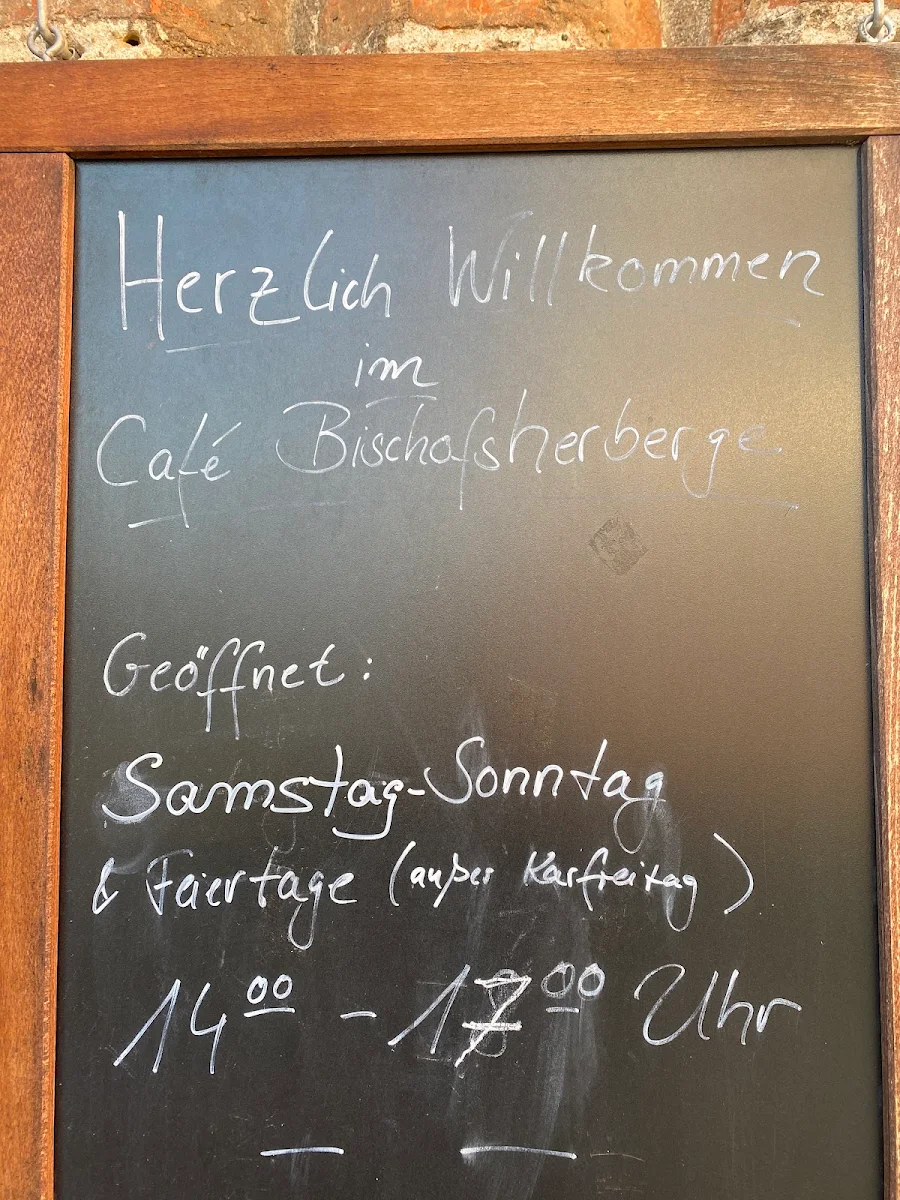 Herzlich Willkommen
im
Café Bischofsherberge
Geöffnet:
Samstag-Sonntag
& Feiertage (außer Karfreitag)
14⁰⁰ - 17⁰⁰ Uhr